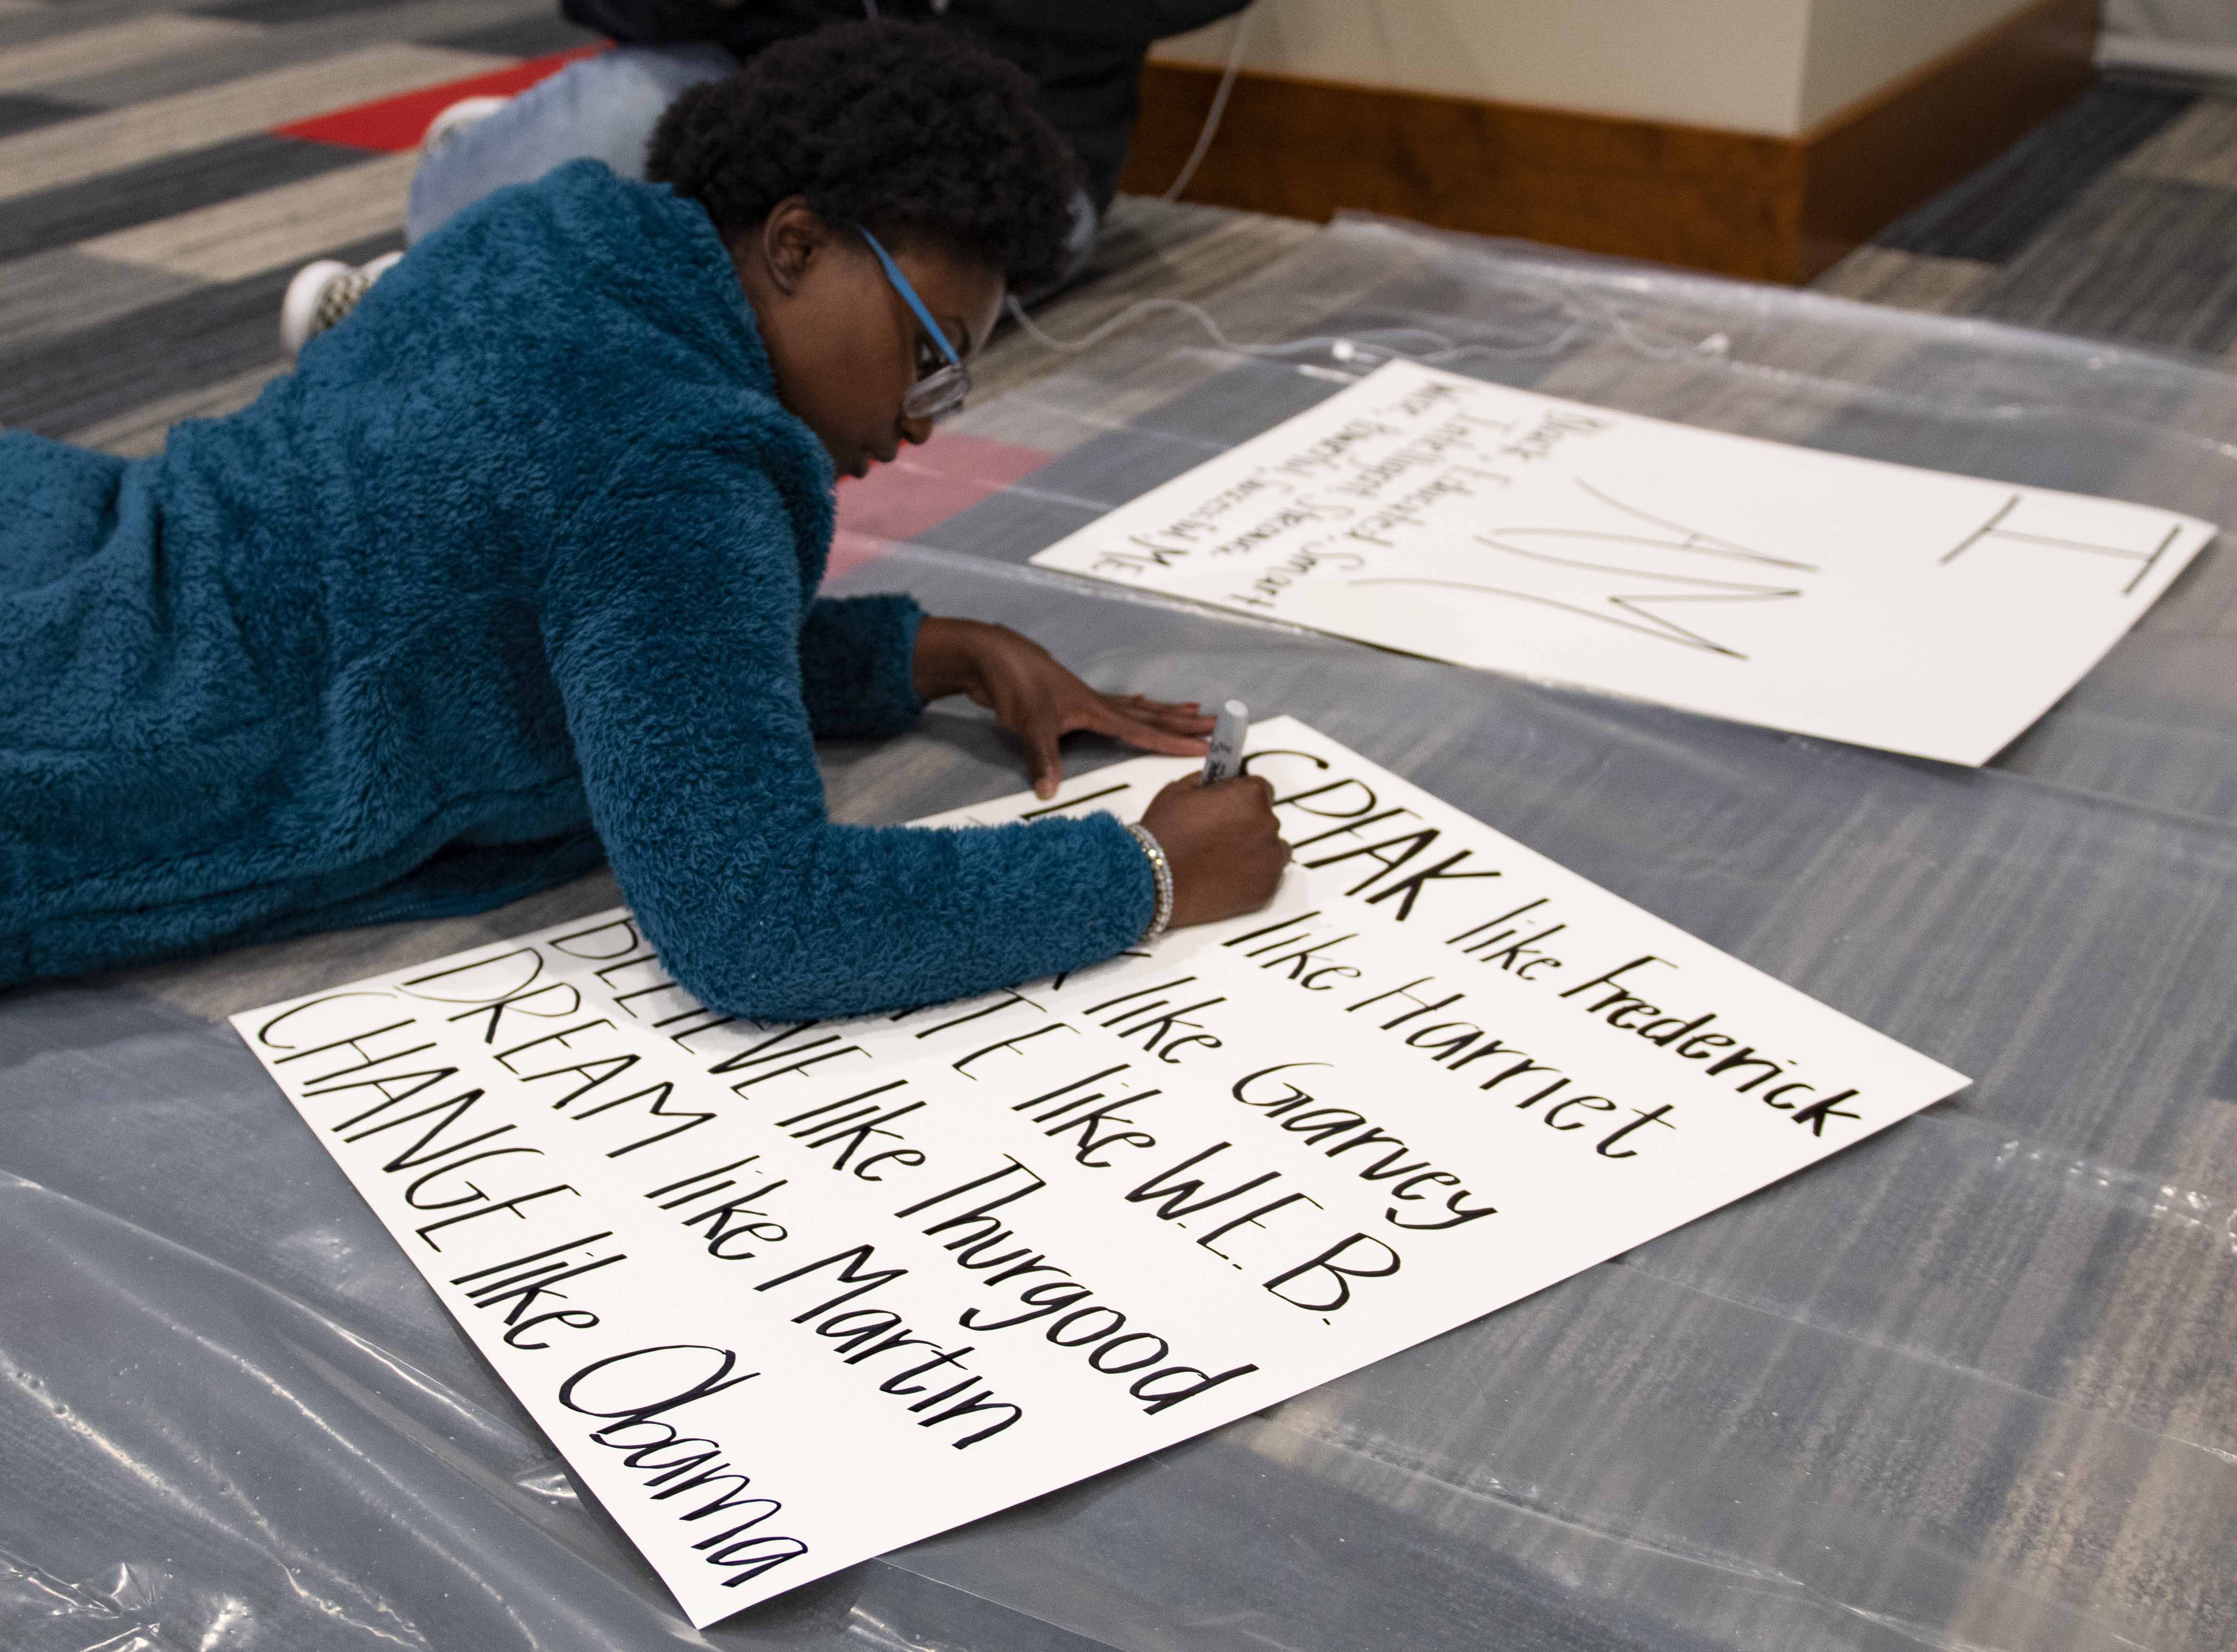 SPEAK like Frederick
like Harriet
like Garvey
like W.E.B.
BELIEVE like Thurgood
DREAM like Martin
CHANGE like Obama
I
AM
Black, Educated, Smart
Intelligent, Strong,
Wise, Powerful, Successful, ME